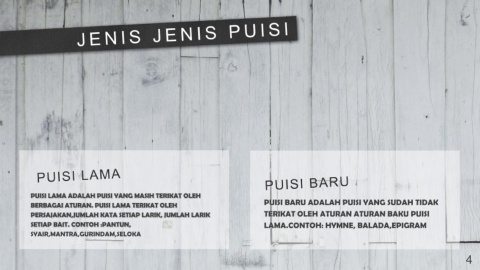 JENIS JENIS PUISI
PUISI LAMA
PUISI LAMA ADALAH PUISI YANG MASIH TERIKAT OLEH
BERBAGAI ATURAN. PUISI LAMA TERIKAT OLEH
PERSAJAKAN,JUMLAH KATA SETIAP LARIK, JUMLAH LARIK
SETIAP BAIT. CONTOH :PANTUN,
SYAIR,MANTRA,GURINDAM,SELOKA
PUISI BARU
PUISI BARU ADALAH PUISI YANG SUDAH TIDAK
TERIKAT OLEH ATURAN ATURAN BAKU PUISI
LAMA.CONTOH: HYMNE, BALADA,EPIGRAM
4